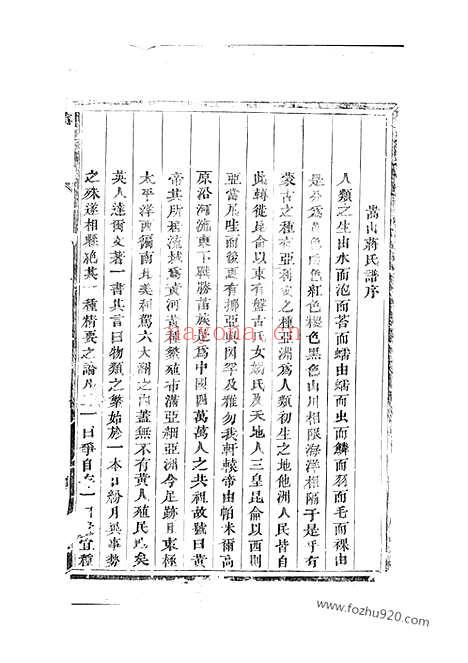 嵩山蔣氏譜序
人類之生由水而泡而苔而蠕由蠕而虫而鱗而羽而毛而裸由
是分爲黃色白色紅色椶色黑色山川相限海洋相隔于是乎有
蒙古之種有亞利安之種亞洲爲人類初生之地他洲人民皆自
此轉徙昆侖以東有盤古氏女媧氏及天地人三皇昆侖以西則
亞當厄娃而後更有挪亞與閃罕及雅弗我軒轅帝由帕米爾高
原沿河流東下戰勝苗族是爲中國四萬萬人之共祖故號曰黃
帝其所循流域爲黃河黃種繁殖布滿亞細亞洲今足跡且東極
太平洋西爾南北美利駕六大洲之內蓋無不有黃人殖民地矣
英人達爾文著一書其言曰物類之繁始於一本日紛月異事勢
之殊遂相縣絕其一種精要之論一曰爭自一曰宜種
nayona.cn
www.fozhu920.com